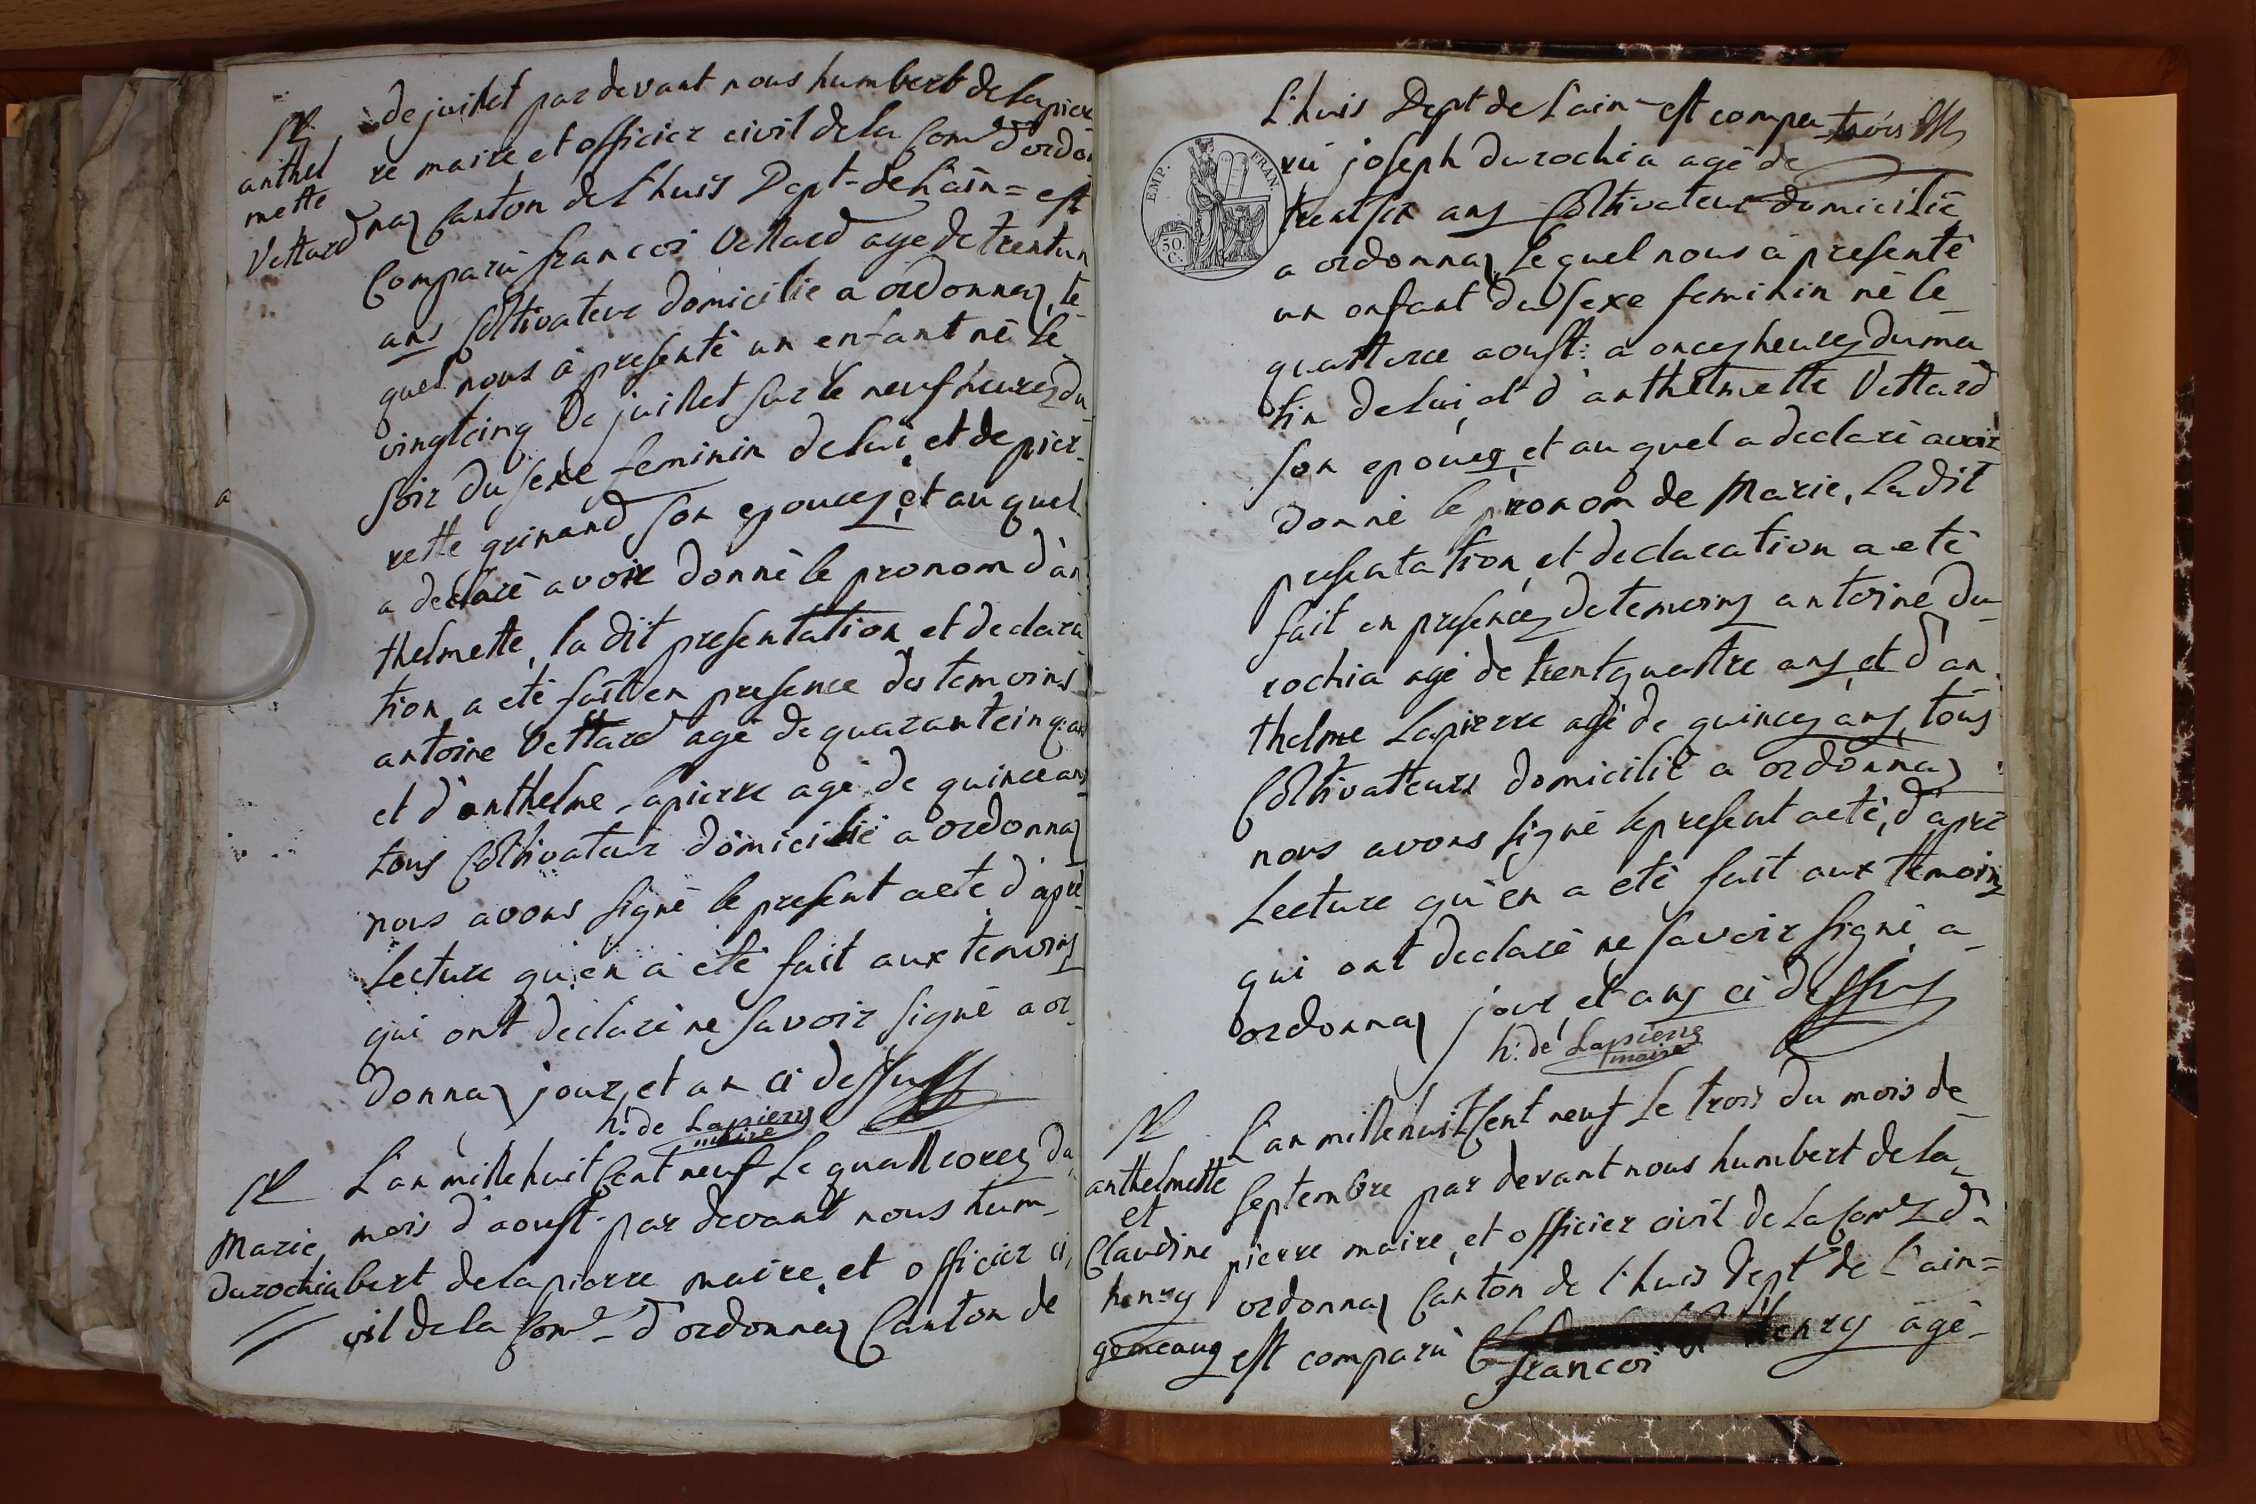 N.
anthel
mette
Vettard
de juillet par devant nous humbert de lapier
re maire et officier civil de la Com.e d'ordon
naz Canton de l'huis Dept. de l'ain = est
Comparu francoi Vettard age de trentun
ans Coltivateur domicilie a ordonnaz, le
quel nous à presenté un enfant né le
vingtcinq De juillet sur le neuf heures du
soir du sexe feminin de lui, et de pier
rette grinand son epouces, et au quel
a declaré avoir donné le pronom d'an
thelmette, la dit presentation et declara
tion, a eté fait en presence des temoins
antoine Vettard agé de quarantcinq. ans
et d'anthelme lapierre agé de quince ans
tous Coltivateur domicilié a ordonnaz
nous avons signé le present acte d'apré
Lecture qu'en a eté fait aux temoins
qui ont declaré ne savoir signé a or
donnaz jour, et an ci dessus
h. de Lapierre
maire
N
Marie
durochia
L'an mille huit Cent neuf Le quattorces du
mois d'aoust par devant nous hum
bert de lapierre maire, et officier ci
vil de la Com.e d'ordonnaz Canton de
a
EMP. FRAN.
50
C.
L'huis Dept de L'ain = est compa trois
ru joseph durochia agé de
trentsix ans Coltivateur domicilié
a ordonnaz, Lequel nous à presenté
un enfant du sexe feminin né le
quattorce aoust: a onces heures du ma
tin de lui, et d'anthelmette Vettard
son epouces et au quel a declaré avoir
donné le pronom de Marie, La dit
presentation, et declaration a eté
fait en presences de temoins antoine du
rochia agé de trentquattre ans, et d'an
thelme Lapierre agé de quinces ans, tous
Coltivateurs domicilié a ordonnaz
nous avons signé le present acte, d'apré
Lecture qu'en a eté fait aux temoins
qui ont declaré ne savoir signé a
ordonnaz jour, et ans ci dessus
h. de Lapierre
maire
N
anthelmette
et
Claudine
henry
gemeaux
L'an mille huit Cent neuf Le trois du mois de
Septembre par devant nous humbert de la
pierre maire, et officier civil de La Com.e d'
ordonnaz Canton de l'huis Dept de l'ain =
est comparu henry agé
francoi